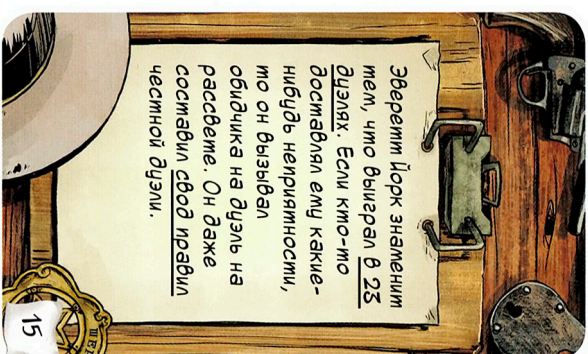 Эверетт Йорк знаменит
тем, что выиграл в 23
дуэлях. Если кто-то
доставлял ему какие-
нибудь неприятности,
то он вызывал
обидчика на дуэль на
рассвете. Он даже
составил свод правил
честной дуэли.
15